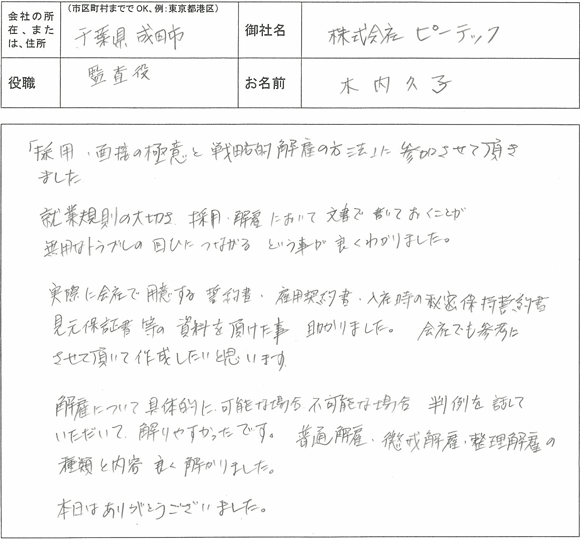 会社の所在、または、住所
(市区町村まででOK、例:東京都港区)
千葉県成田市
御社名
株式会社 ピーテック
役職
監査役
お名前
木内久子
「採用・面接の極意と戦略的解雇の方法」に参加させて頂き
ました
就業規則の大切さ 採用・解雇において文書で書いておくことが
無用なトラブルの回ひにつながるという事が良くわかりました。
実際に会社で用意する誓約書・雇用契約書・入社時の秘密保持誓約書
身元保証書等の資料を頂けた事 助かりました。 会社でも参考に
させて頂いて作成したいと思います
解雇について具体的に、可能な場合 不可能な場合 判例を話して
いただいて、解りやすかったです。 普通解雇・懲戒解雇・整理解雇の
種類と内容 良く解かりました。
本日はありがとうございました。